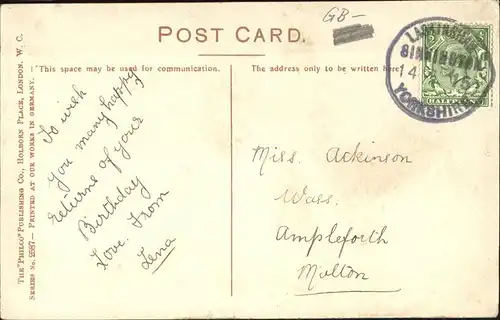 GB-
POST CARD.
"This space may be used for communication.
The address only to be written here.
THE "PHILCO" PUBLISHING CO., HOLBORN PLACE, LONDON. W. C.
SERIES No. 2587— PRINTED AT OUR WORKS IN GERMANY.
To wish
you many happy
returns of your
Birthday
Love From
Lena
SINNINGTON
14
YORKSHIRE
HALFPENNY
Miss. Ackinson
Wass.
Ampleforth
Malton